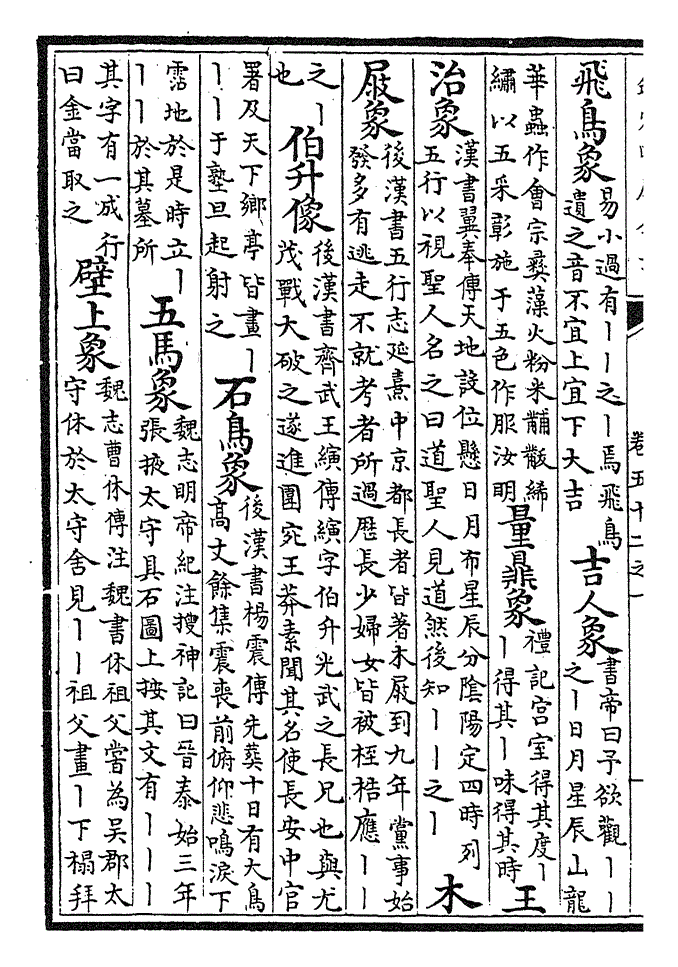 飛鳥象易小過有丨丨之丨焉飛鳥遺之音不宜上宜下大吉吉人象書帝曰予欲觀丨丨之丨日月星辰山龍
華蟲作會宗彝藻火粉米黼黻絺繡以五采彰施于五色作服汝明量鼎象禮記宮室得其度丨丨得其丨味得其時王
治象漢書翼奉傳天地設位懸日月布星辰分陰陽定四時列五行以視聖人名之曰道聖人見道然後知丨丨之丨木
屐象後漢書五行志延熹中京都長者皆著木屐到九年黨事始發多有逃走不就考者所過歴長少婦女皆被桎梏應丨丨
之丨也伯升像後漢書齊武王縯傳縯字伯升光武之長兄也與尤茂戰大破之遂進圍宛王莽素聞其名使長安中官
署及天下鄉亭皆畫丨丨丨于塾旦起射之石鳥象後漢書楊震傳先葬十日有大鳥高丈餘集震喪前俯仰悲鳴淚下
霑地於是時立丨丨丨於其墓所五馬象魏志明帝紀注搜神記曰晉泰始三年張掖太守具石圖上按其文有丨丨丨
其字有一成行曰金當取之壁上象魏志曹休傳注魏書休祖父嘗為吳郡太守休於太守舍見丨丨祖父畫丨下榻拜
卷五十二之一